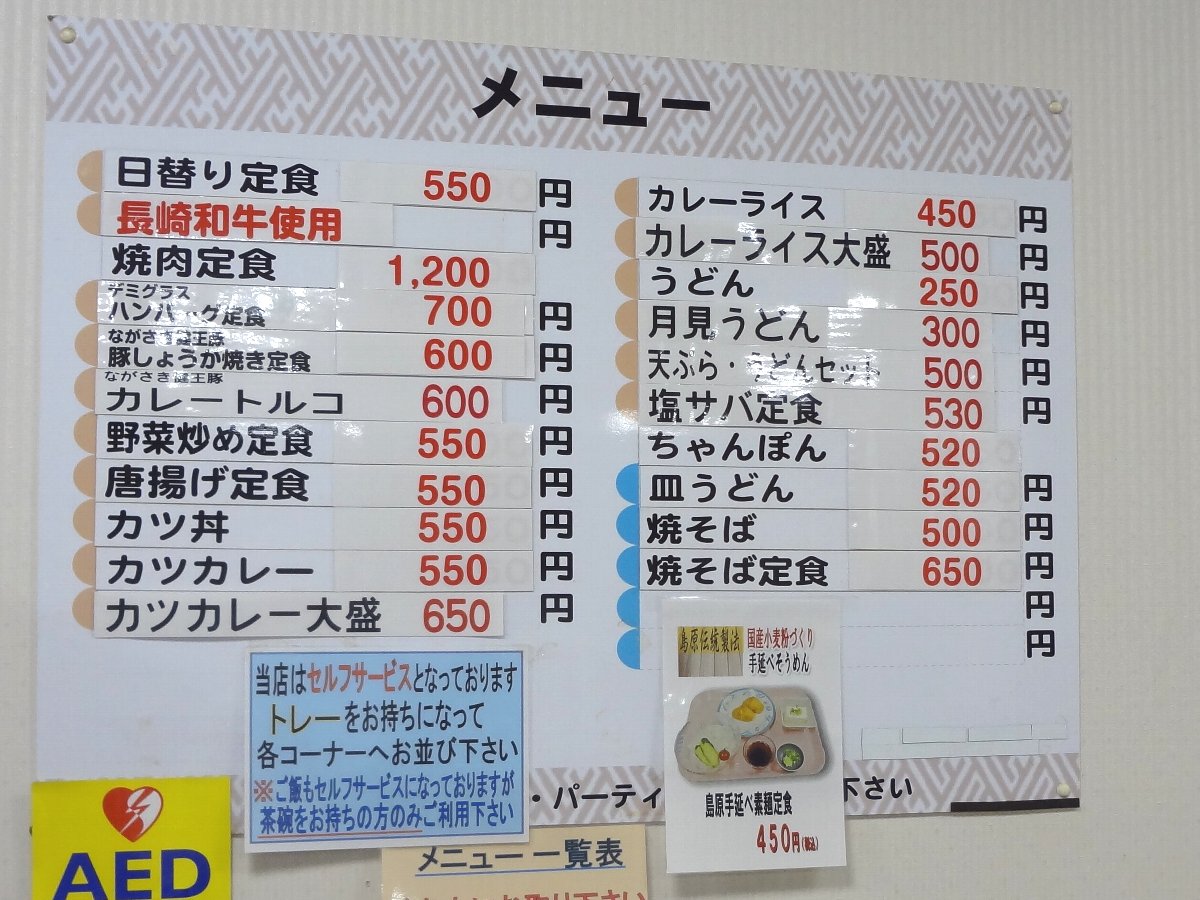 メニュー
日替り定食 550 円
長崎和牛使用 円
焼肉定食 1,200
デミグラス
ハンバーグ定食 700 円
ながさき健王豚
豚しょうが焼き定食 600 円
ながさき健王豚
カレートルコ 600 円
野菜炒め定食 550 円
唐揚げ定食 550 円
カツ丼 550 円
カツカレー 550 円
カツカレー大盛 650 円
カレーライス 450 円
カレーライス大盛 500 円
うどん 250 円
月見うどん 300 円
天ぷら・うどんセット 500 円
塩サバ定食 530 円
ちゃんぽん 520
皿うどん 520 円
焼そば 500 円
焼そば定食 650 円
円
円
当店はセルフサービスとなっております
トレーをお持ちになって
各コーナーへお並び下さい
※ご飯もセルフサービスになっておりますが
茶碗をお持ちの方のみご利用下さい
島原伝統製法
国産小麦粉づくり
手延べそうめん
島原手延べ素麺定食
450円(税込)
・パーティ
下さい
AED
メニュー一覧表